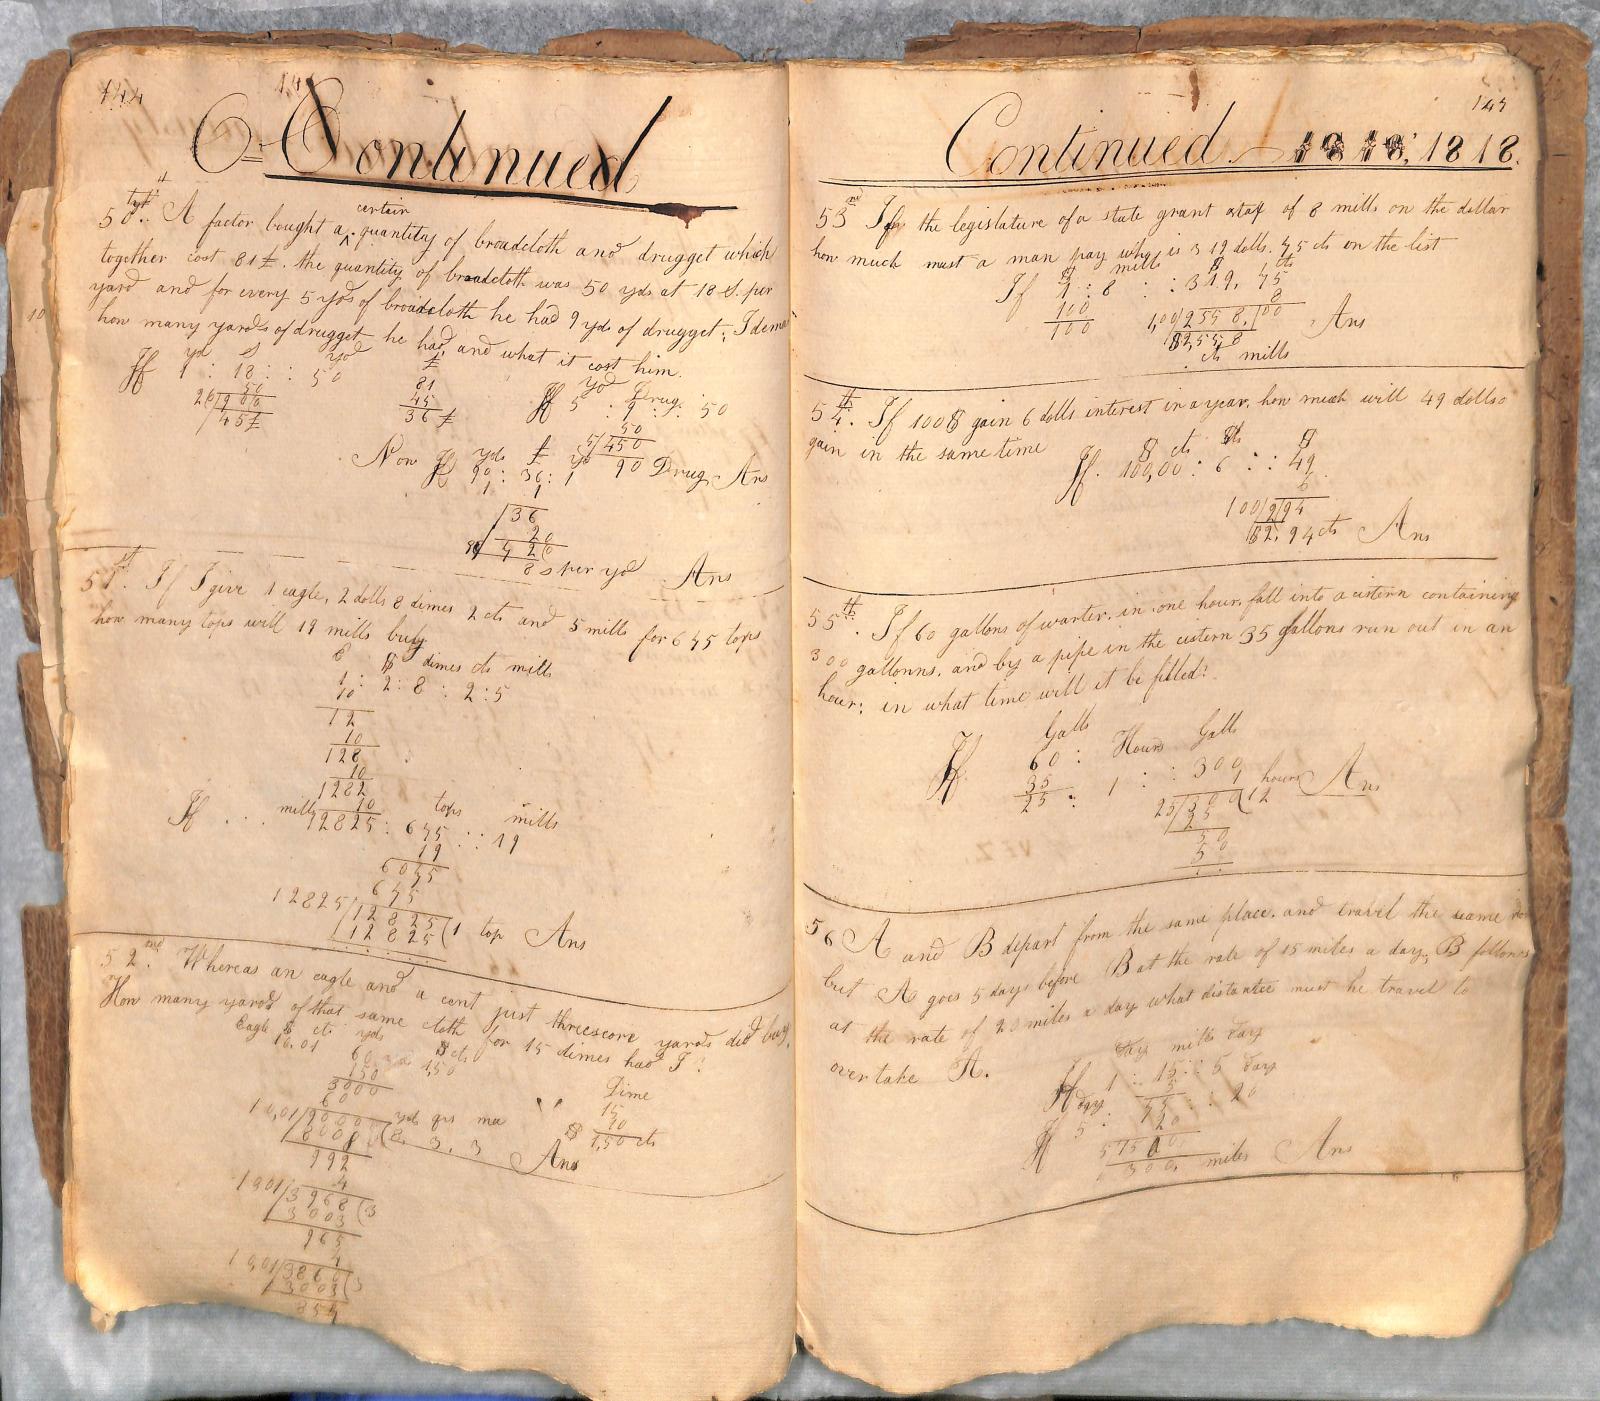 144
C Continued
50th. A factor bought a certain quantity of broadcloth and drugget which
together cost 81 £. the quantity of broadcloth was 50 yds at 18 S. per
yard and for every 5 yds of broadcloth he had 9 yds of drugget; I dema
how many yards of drugget he had, and what it cost him.
yd S yd £
If 1 : 18 : : 50 81
50 45
20/900 36 £
45 £
yd Drug.
If 5 : 9 : : 50
50
5/450
90 Drug Ans
yds £ yd
Now If 90 : 36 : 1
1 1
36
20
90/720
8 s per yd Ans
51st. If I give 1 eagle, 2 dolls 8 dimes 2 cts and 5 mills for 675 tops
how many tops will 19 mills buy
E $ dimes cts mills
1 : 2 : 8 : 2 : 5
10
12
10
128
10
1282
10
mills tops mills
If . . . 12825 : 675 : : 19
19
6075
675
12825/12825(1 top Ans
12825
52nd. Whereas an eagle and a cent just threescore yards did buy,
How many yards of that same cloth for 15 dimes had I?
Eagle $ cts yds $ cts
10.01 60 yds 1,50
150
3000
60
10,01/9000(8. 3. 3 Ans
yds qrs na
8008
992
4
1001/3968(3
3003
965
4
1001/3860(3
3003
857
Dime
15
10
$ 1,50 cts
145
Continued. 1818, 1818.
53rd If the legislature of a state grant a tax of 8 mills on the dollar
how much must a man pay who is 319 dolls. 75 cts on the list
$ mills $ cts
If 1 : 8 : : 319, 75
100 8
100 1,00/2558,00 Ans
$2,55,8
cts mills
54th. If 100$ gain 6 dolls interest in a year, how much will 49 dolls
gain in the same time
$ cts $
If. 100,00 : 6 : : 49
6
100/294
$2. 94 cts Ans
55th. If 60 gallons of warter, in one hour, fall into a cistern containing
300 gallonns, and by a pipe in the cistern 35 gallons run out in an
hour; in what time will it be filled?
Galls Hours Galls
If 60 : 1 : : 300
35 1
25 25/300(12 hours Ans
25
50
50
56 A and B depart from the same place, and travel the same
but A goes 5 days before B at the rate of 15 miles a day, B follows
at the rate of 20 miles a day what distantce must he travel to
overtake A.
day mils day
If 1 : 15 : : 5 day
day 5
If 5 : 75 : : 20
20
5/1500
300, miles Ans